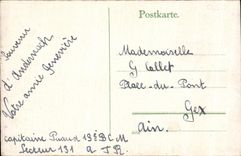 Postkarte.
Souvenir
d'Andernach
Votre amie Geneviève
Mademoiselle
G Collet
Place-du-Pont
Gex
Ain.
Capitaine 13è B C M
Secteur 131 a T R.